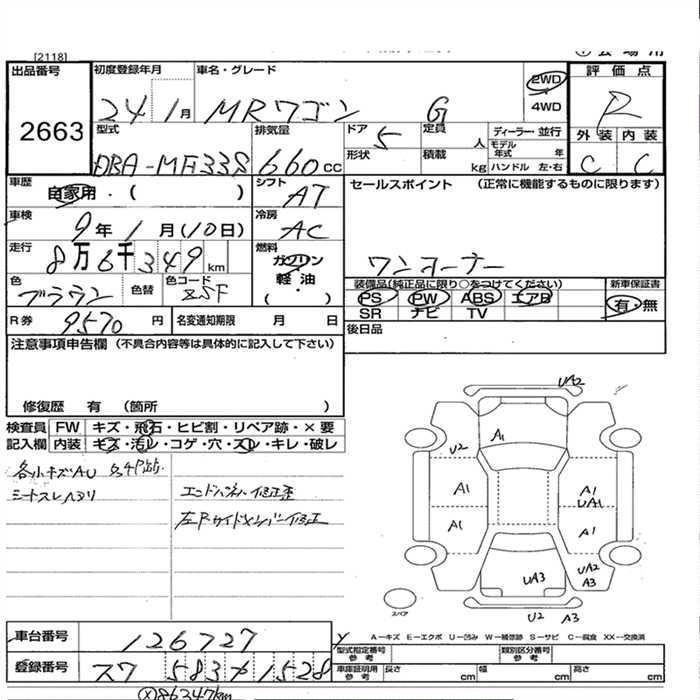 [2118]
出品番号 初度登録年月 車名・グレード 2WD 4WD 評価点
2663 24年1月 MRワゴン G R
外装 内装
C C
型式 排気量 ドア 5 定員 人 ディーラー・並行
DBA-MF33S 660cc 形状 積載 kg モデル年式 年 ハンドル 左・右
車歴 自家用・( ) シフト AT セールスポイント (正常に機能するものに限ります)
車検 9年1月(10日) 冷房 AC
走行 8万6千349km 燃料 ガソリン 軽油 (・) ワンオーナー
色 ブラウン 色替 色コード ZSF
装備品(純正品に限り○をつけてください) 新車保証書
PS PW ABS エアB 有・無
SR ナビ TV
R券 9570円 名変通知期限 月 日 後日品
注意事項申告欄 (不具合内容等は具体的に記入して下さい)
修復歴 有 (箇所 )
検査員 FW キズ・飛石・ヒビ割・リペア跡・×要
記入欄 内装 キズ・汚レ・コゲ・穴・スレ・キレ・破レ
各小キズAU
シートスレヘタリ
エンドパネル修正歪
左Rサイドメンバー修正
UA2
A1
U2
A1 A1
UA1
A1 A1
UA2
A3
UA3
U2 A3
スペア
A-キズ E-エクボ U-凹み W-補修跡 S-サビ C-腐食 XX-交換済
車台番号 126727 型式指定番号 参考 類別区分番号 参考
登録番号 スワ 583 1528 車庫証明用 参考 長さ cm 幅 cm 高さ cm
(X)86347km